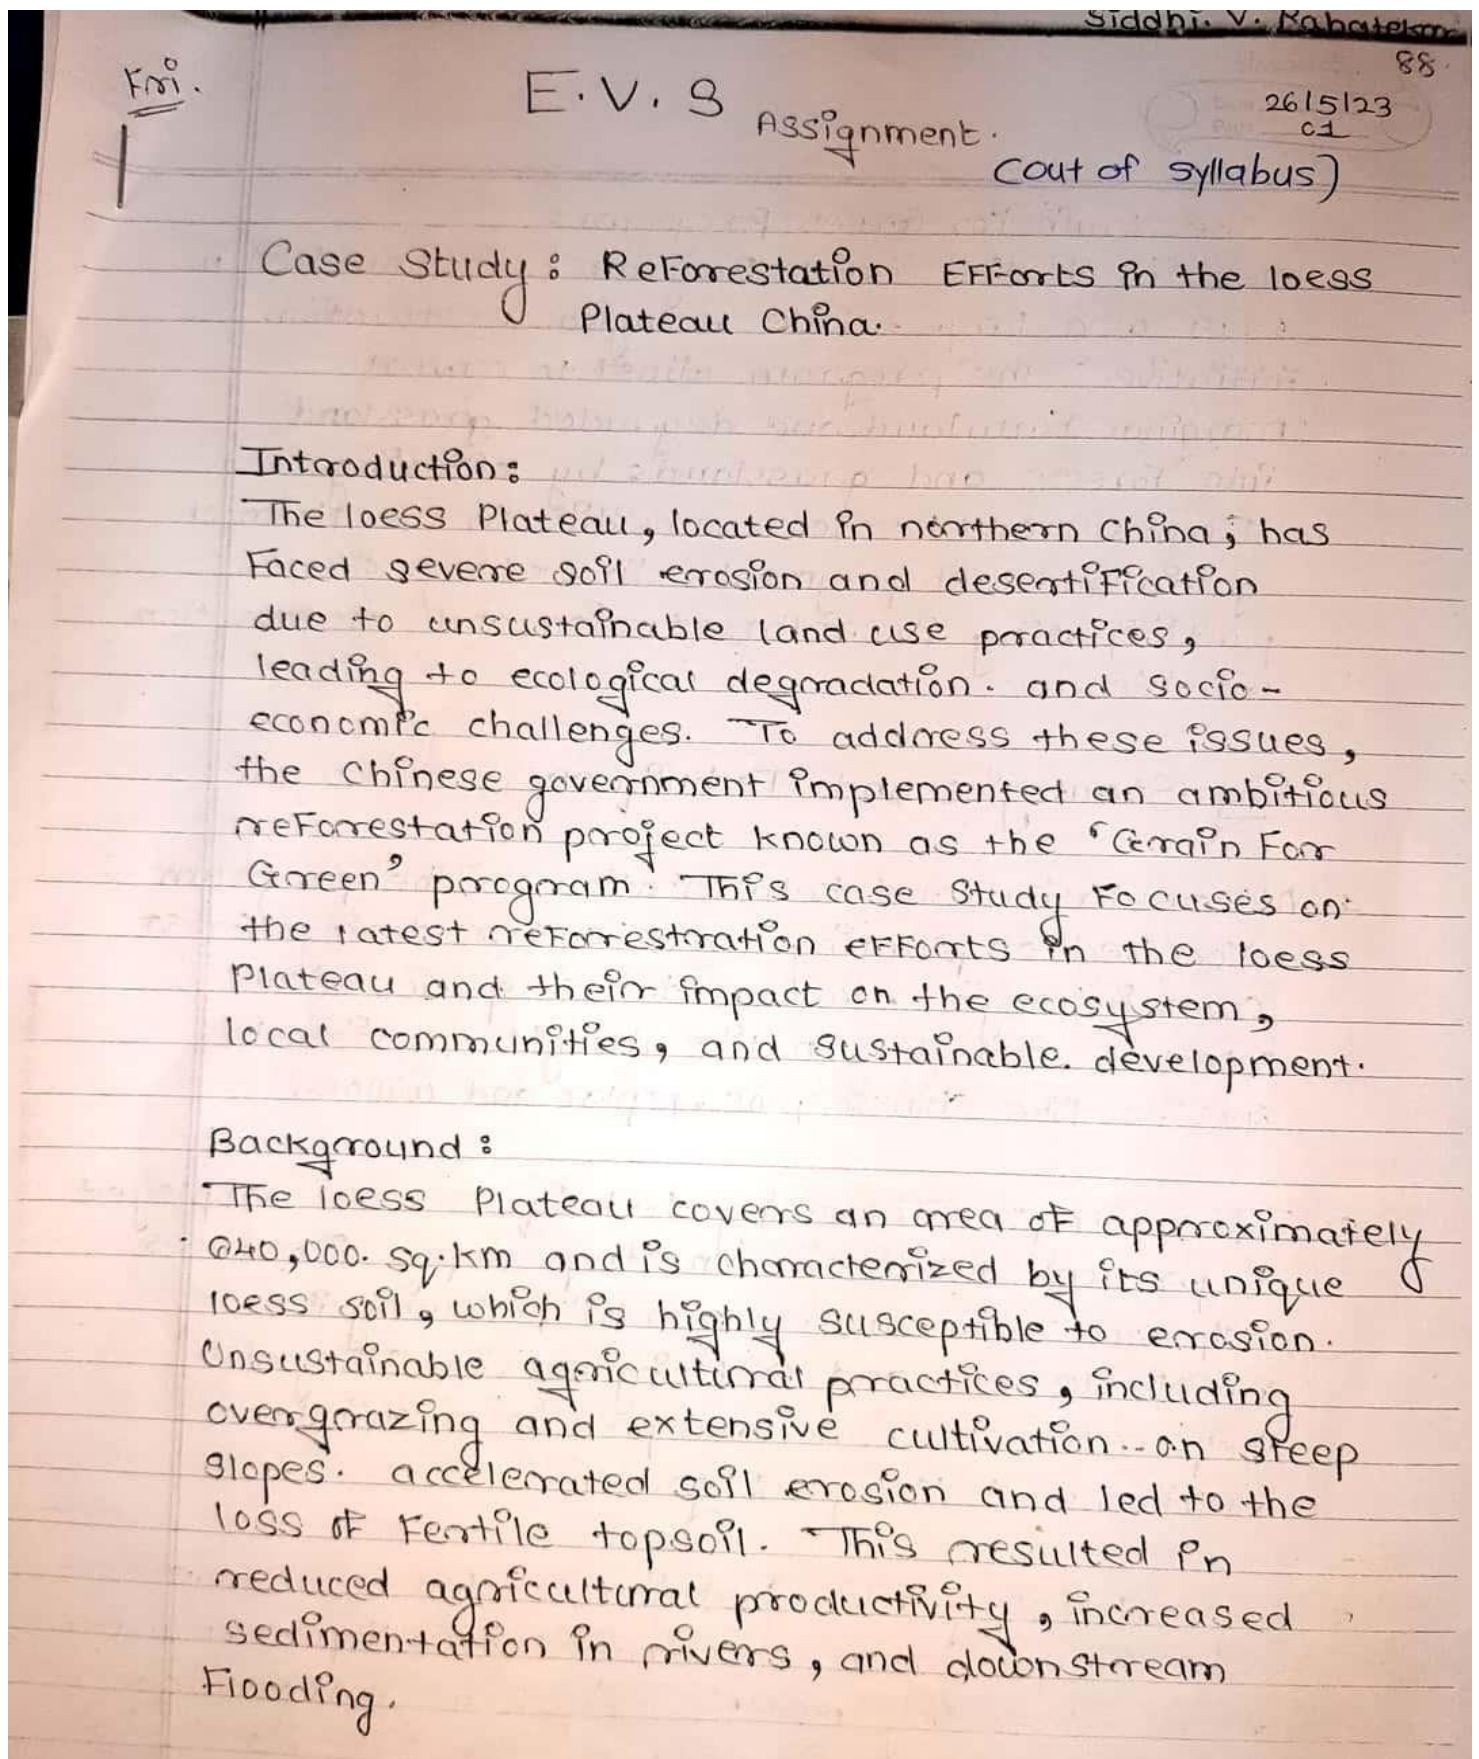 Siddhi. V. Rahatekar
88
Fri.
E.V.S Assignment.
26/5/23
01
(out of syllabus)
Case Study: Reforestation Efforts in the loess
Plateau China.
Introduction:
The loess Plateau, located in northern China, has
Faced severe soil erosion and desertification
due to unsustainable land use practices,
leading to ecological degradation. and socio-
economic challenges. To address these issues,
the Chinese government implemented an ambitious
reforestation project known as the 'Grain For
Green' program. This case Study Focuses on
the latest reforrestration efforts in the loess
Plateau and their impact on the ecosystem,
local communities, and sustainable. development.
Background:
The loess Plateau covers an area of approximately
640,000. sq.km and is characterized by its unique
loess soil, which is highly susceptible to erosion.
Unsustainable agricultural practices, including
overgrazing and extensive cultivation.. on steep
slopes. accelerated soil erosion and led to the
loss of Fertile topsoil. This resulted in
reduced agricultural productivity, increased
sedimentation in rivers, and downstream
Flooding.